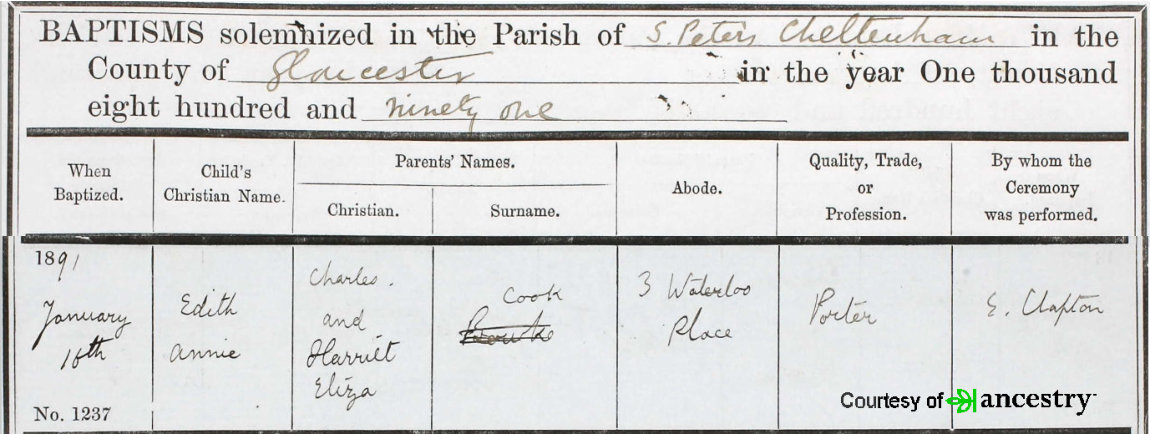 BAPTISMS solemnized in the Parish of S. Peters Cheltenham in the
County of Gloucester in the year One thousand
eight hundred and ninety one
When Baptized.
Child's Christian Name.
Parents' Names.
Christian.
Surname.
Abode.
Quality, Trade, or Profession.
By whom the Ceremony was performed.
1891
January
16th
No. 1237
Edith
Annie
Charles.
and
Harriet
Eliza
Cook
3 Waterloo
Place
Porter
E. Clapton
Courtesy of ancestry